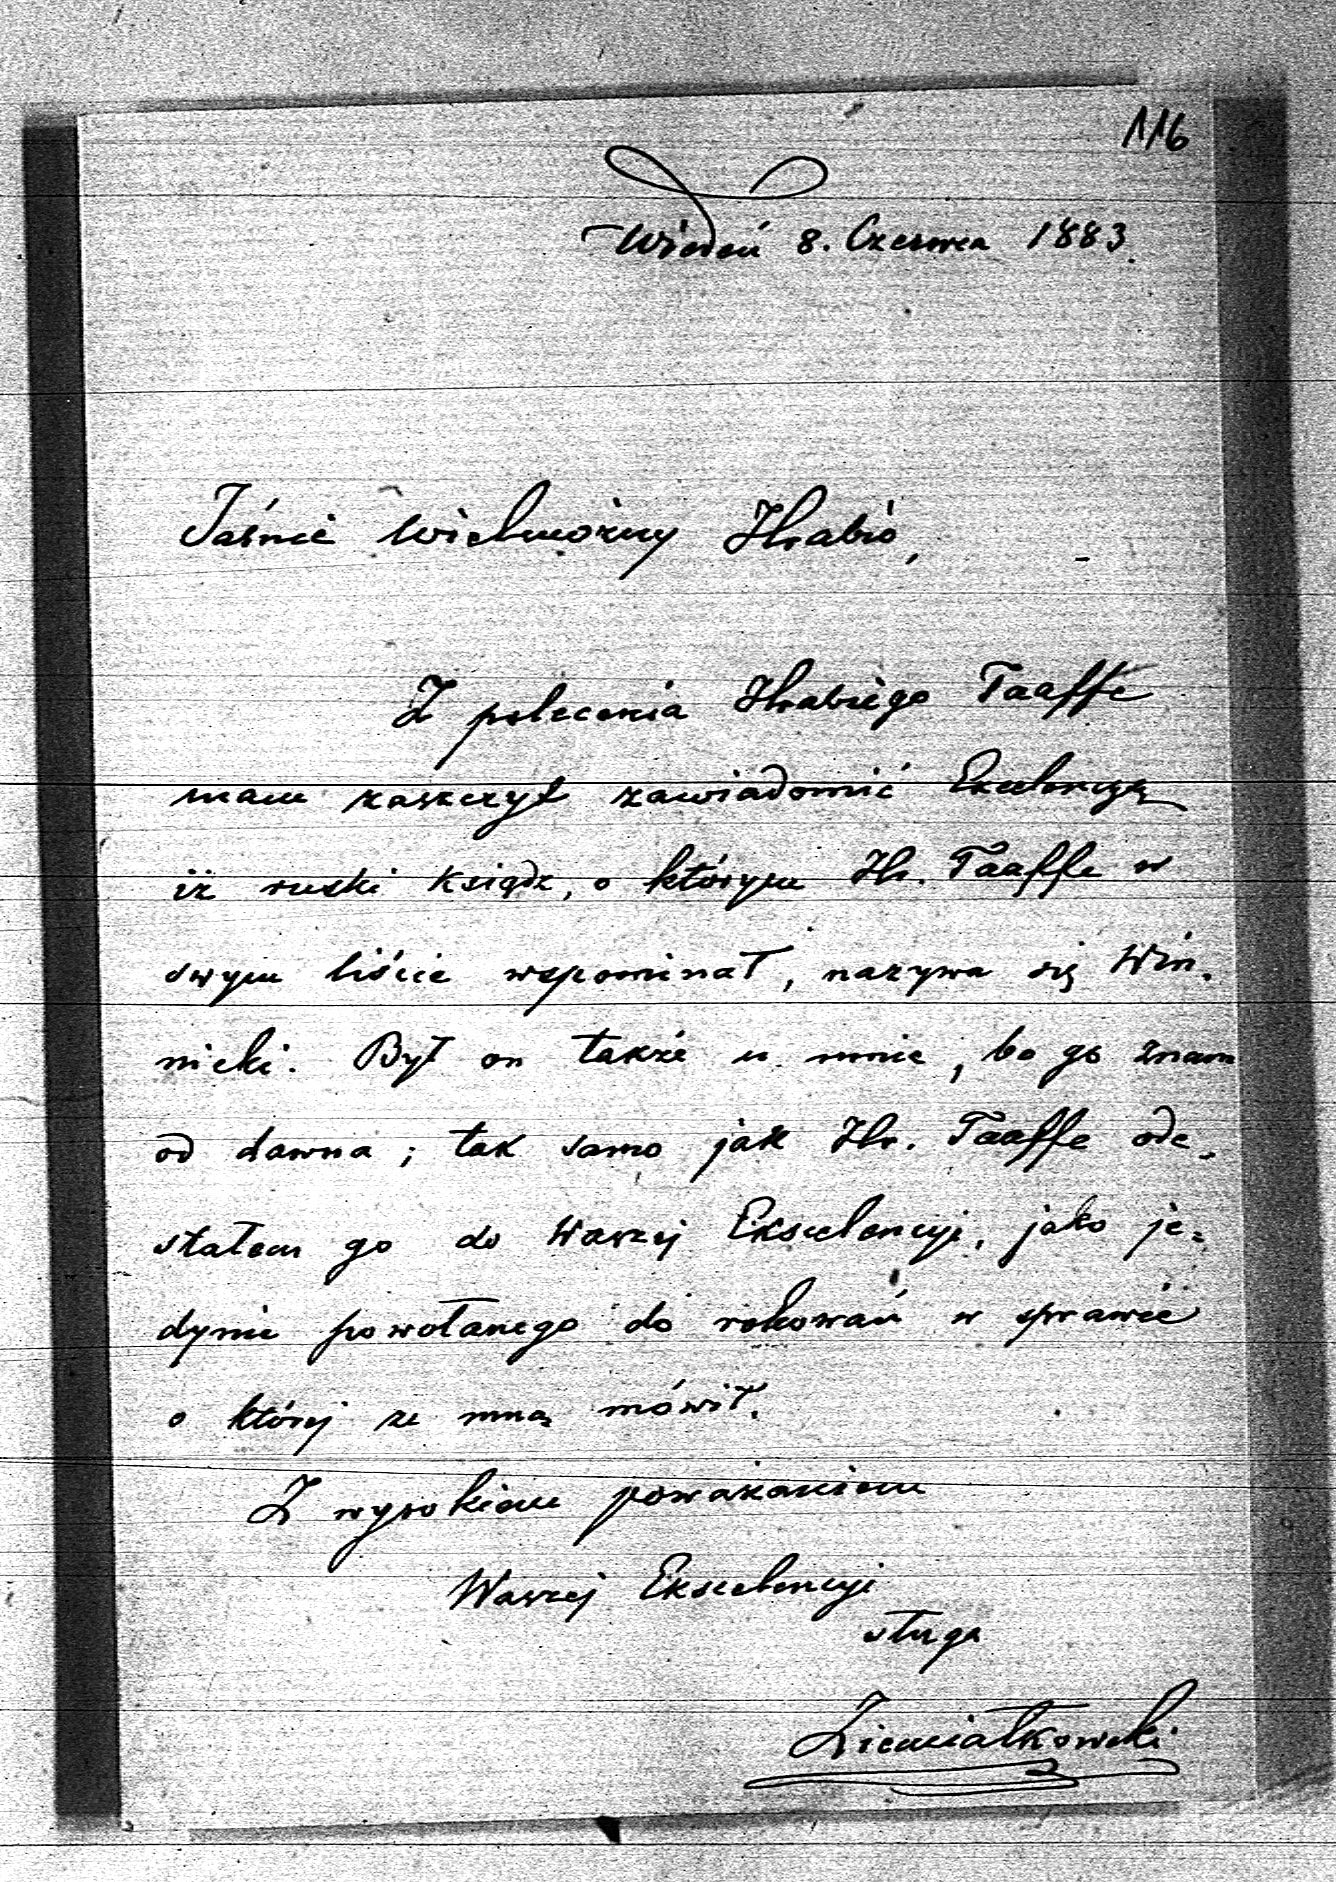 116
Wiedeń 8. Czerwca 1883.
Jaśnie Wielmożny Hrabio,
Z polecenia Hrabiego Taaffe
mam zaszczyt zawiadomić Excelencyą
iż ruski ksiądz, o którym Hr. Taaffe w
swym liście wspominał, nazywa się Win-
nicki. Był on także u mnie, bo go znam
od dawna; tak samo jak Hr. Taaffe ode-
słałem go do Waszej Ekscelencyi, jako je-
dynie powołanego do rokowań w sprawie
o której ze mną mówił.
Z wysokiem poważaniem
Waszej Ekscelencyi
sługa
Ziemiałkowski